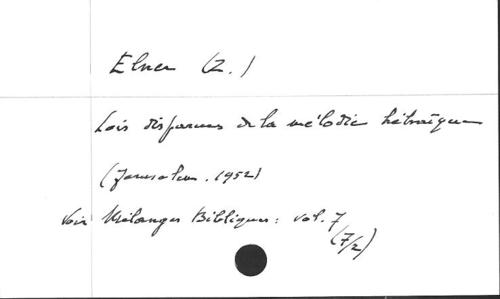 Elner (Z.)
Lois disparues de la mélodie hébraïque
(Jerusalem. 1952)
voir Mélanges Bibliques : vol. 7
(7/2)